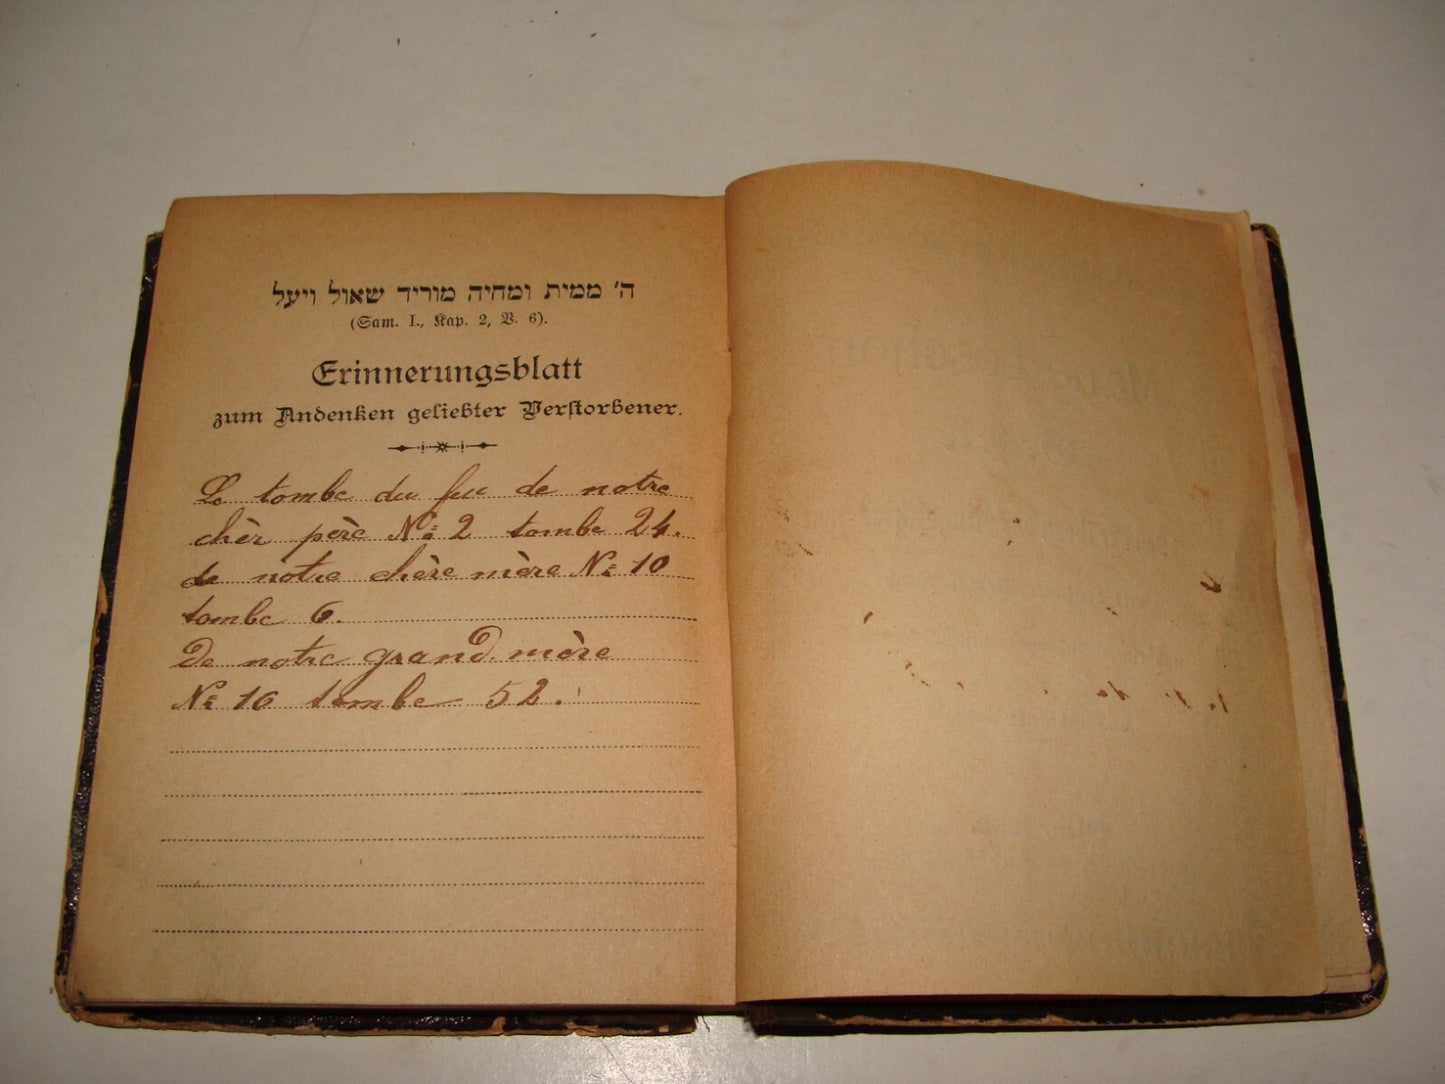 ה' ממית ומחיה מוריד שאול ויעל
(Sam. I., Kap. 2, V. 6).
Erinnerungsblatt
zum Andenken geliebter Verstorbener.
Le tombe du feu de notre
chèr père No 2 tombe 24.
de notre chère mère No 10
tombe 6.
De notre grand mère
No 16 tombe 52.